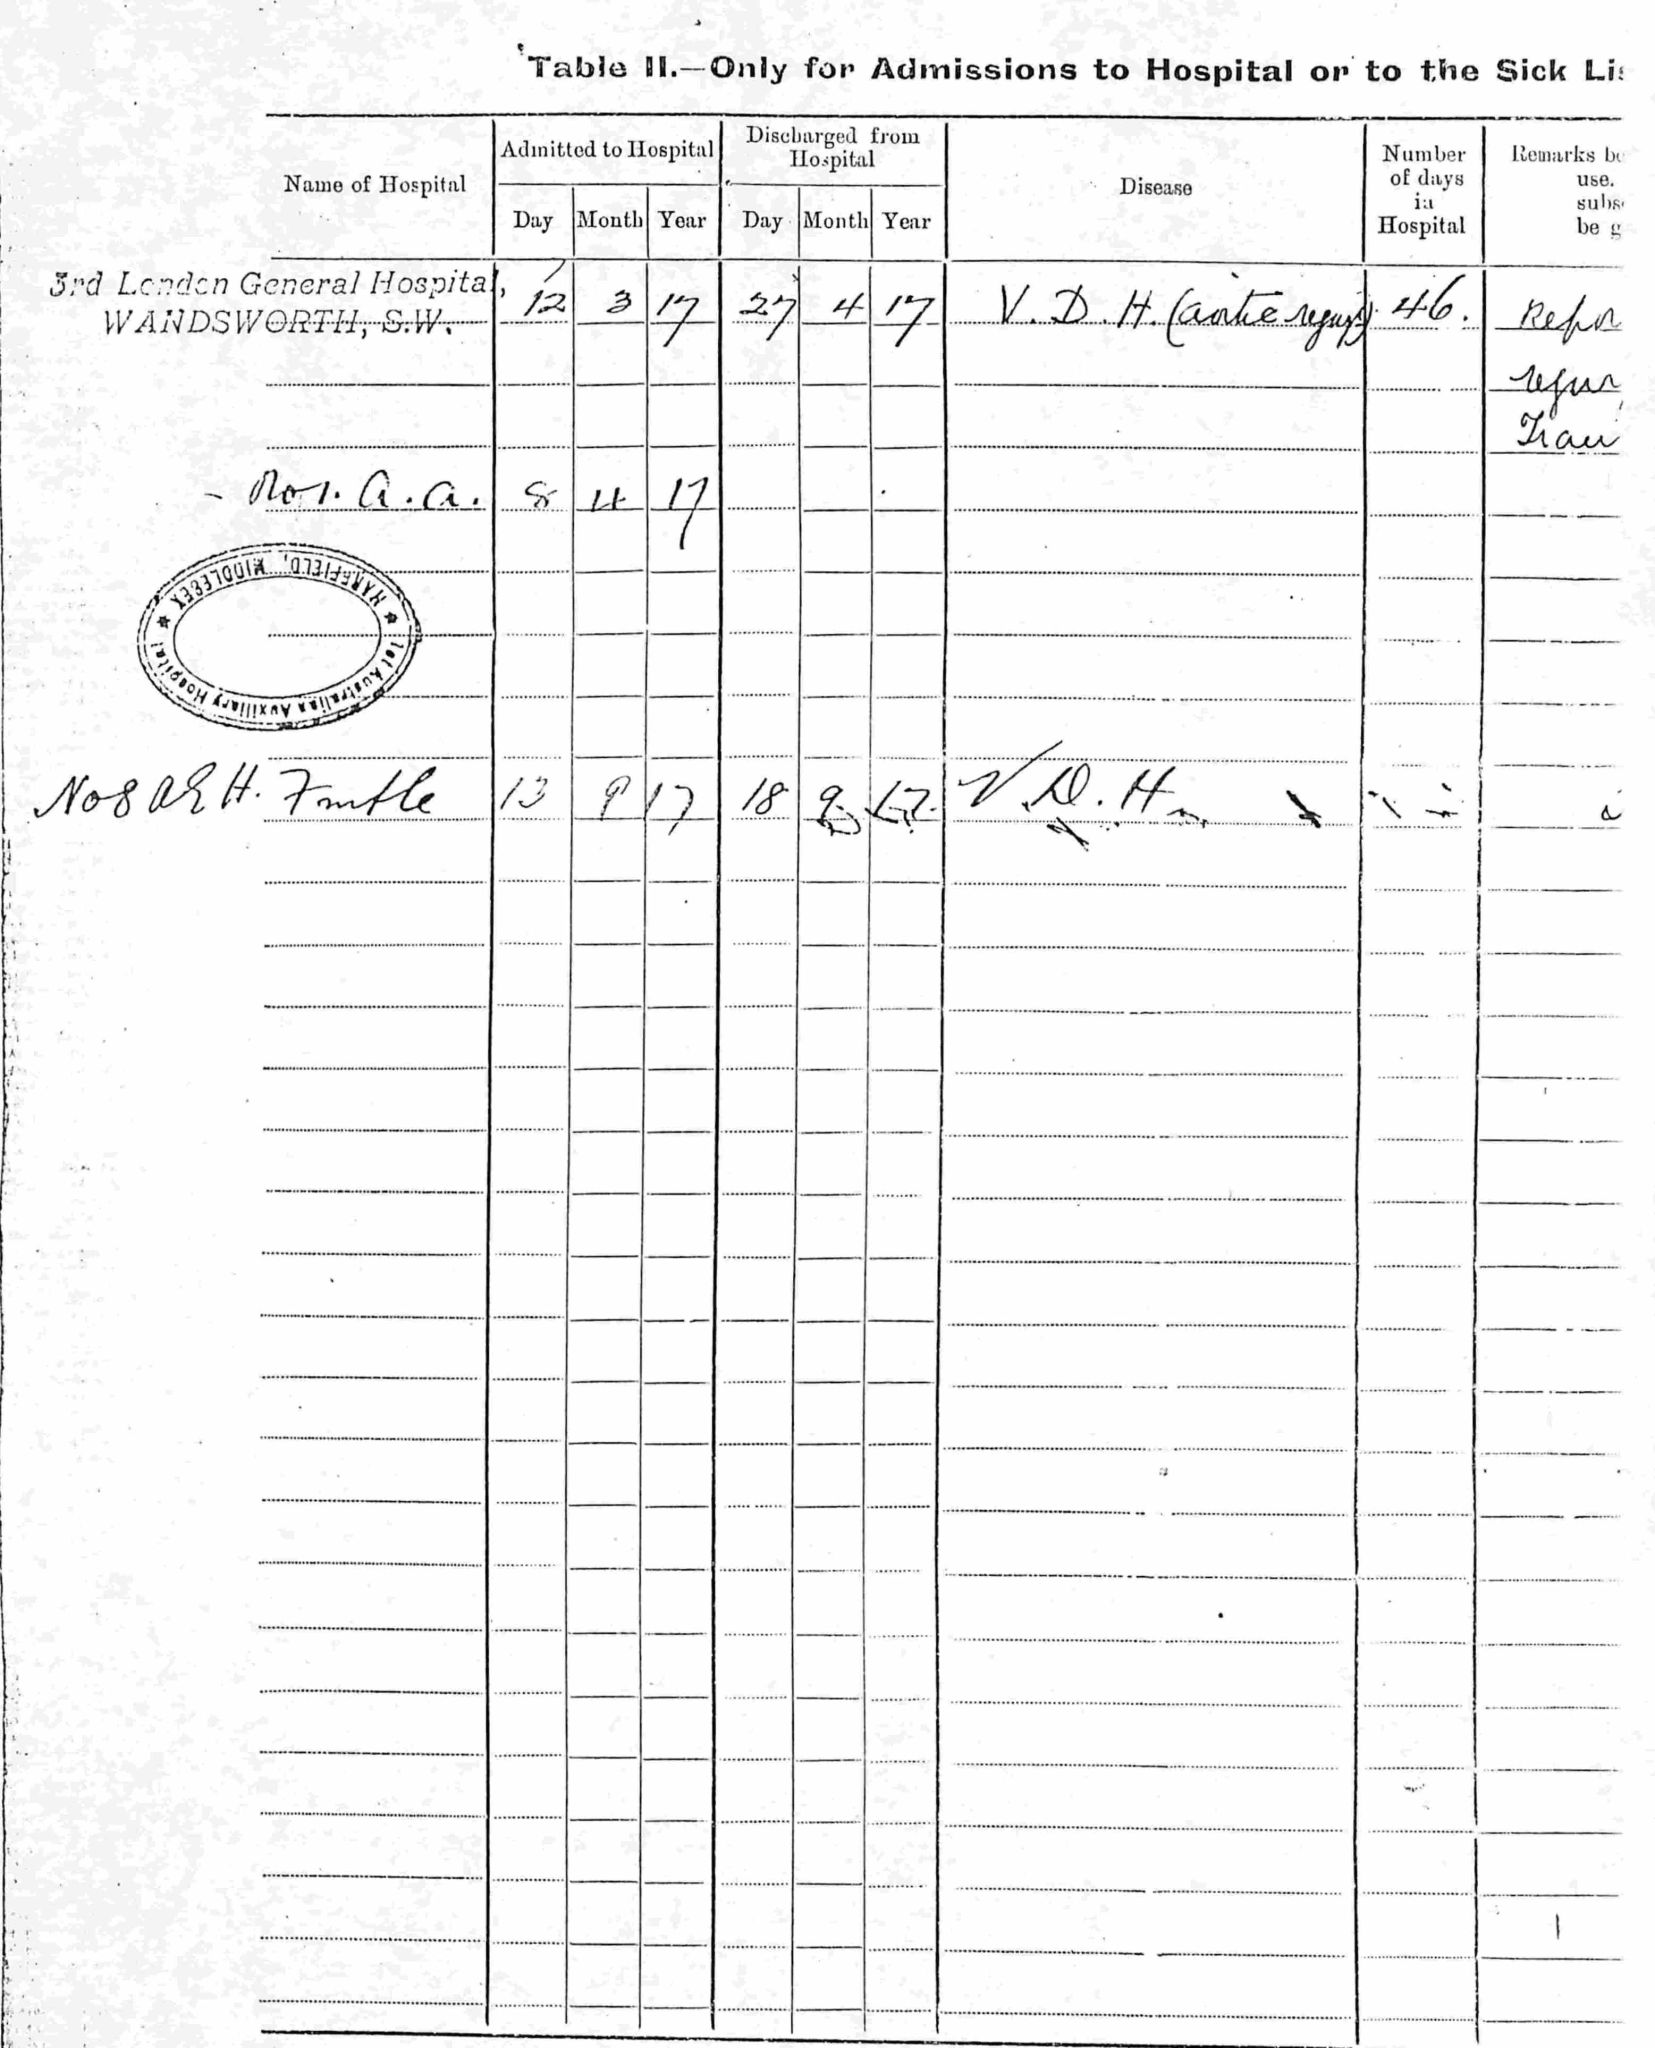 Table II.—Only for Admissions to Hospital or to the Sick Lis
Name of Hospital
Admitted to Hospital
Discharged from Hospital
Disease
Number of days in Hospital
Remarks be
use.
subs
be g
Day Month Year Day Month Year
3rd London General Hospital,
WANDSWORTH, S.W. 12 3 17 27 4 17 V. D. H. (aortic regurg) 46. Repor
regur
Tran
No 1. A. A. 8 4 17
HAREFIELD, MIDDLESEX
1st Australian Auxiliary Hospital
No 8 A G H. F'mtle 13 9 17 18 9 17 V. D. H